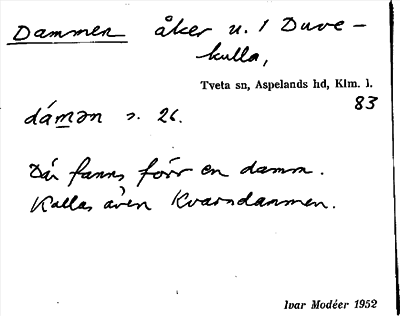 Dammen åker u. 1 Duve-
kulla,
Tveta sn, Aspelands hd, Klm. l.
83
dámən s. 26.
Där fanns förr en damm.
Kallas även Kvarndammen.
Ivar Modéer 1952